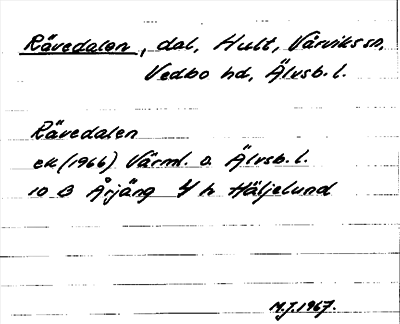 Rävedalen, dal, Hult, Vårvikssn,
Vedbo hd, Älvsb. l.
Rävedalen
ek(1966) Värml. o. Älvsb. l.
10 B Årjäng 4 h Häljelund
M.J.1967.